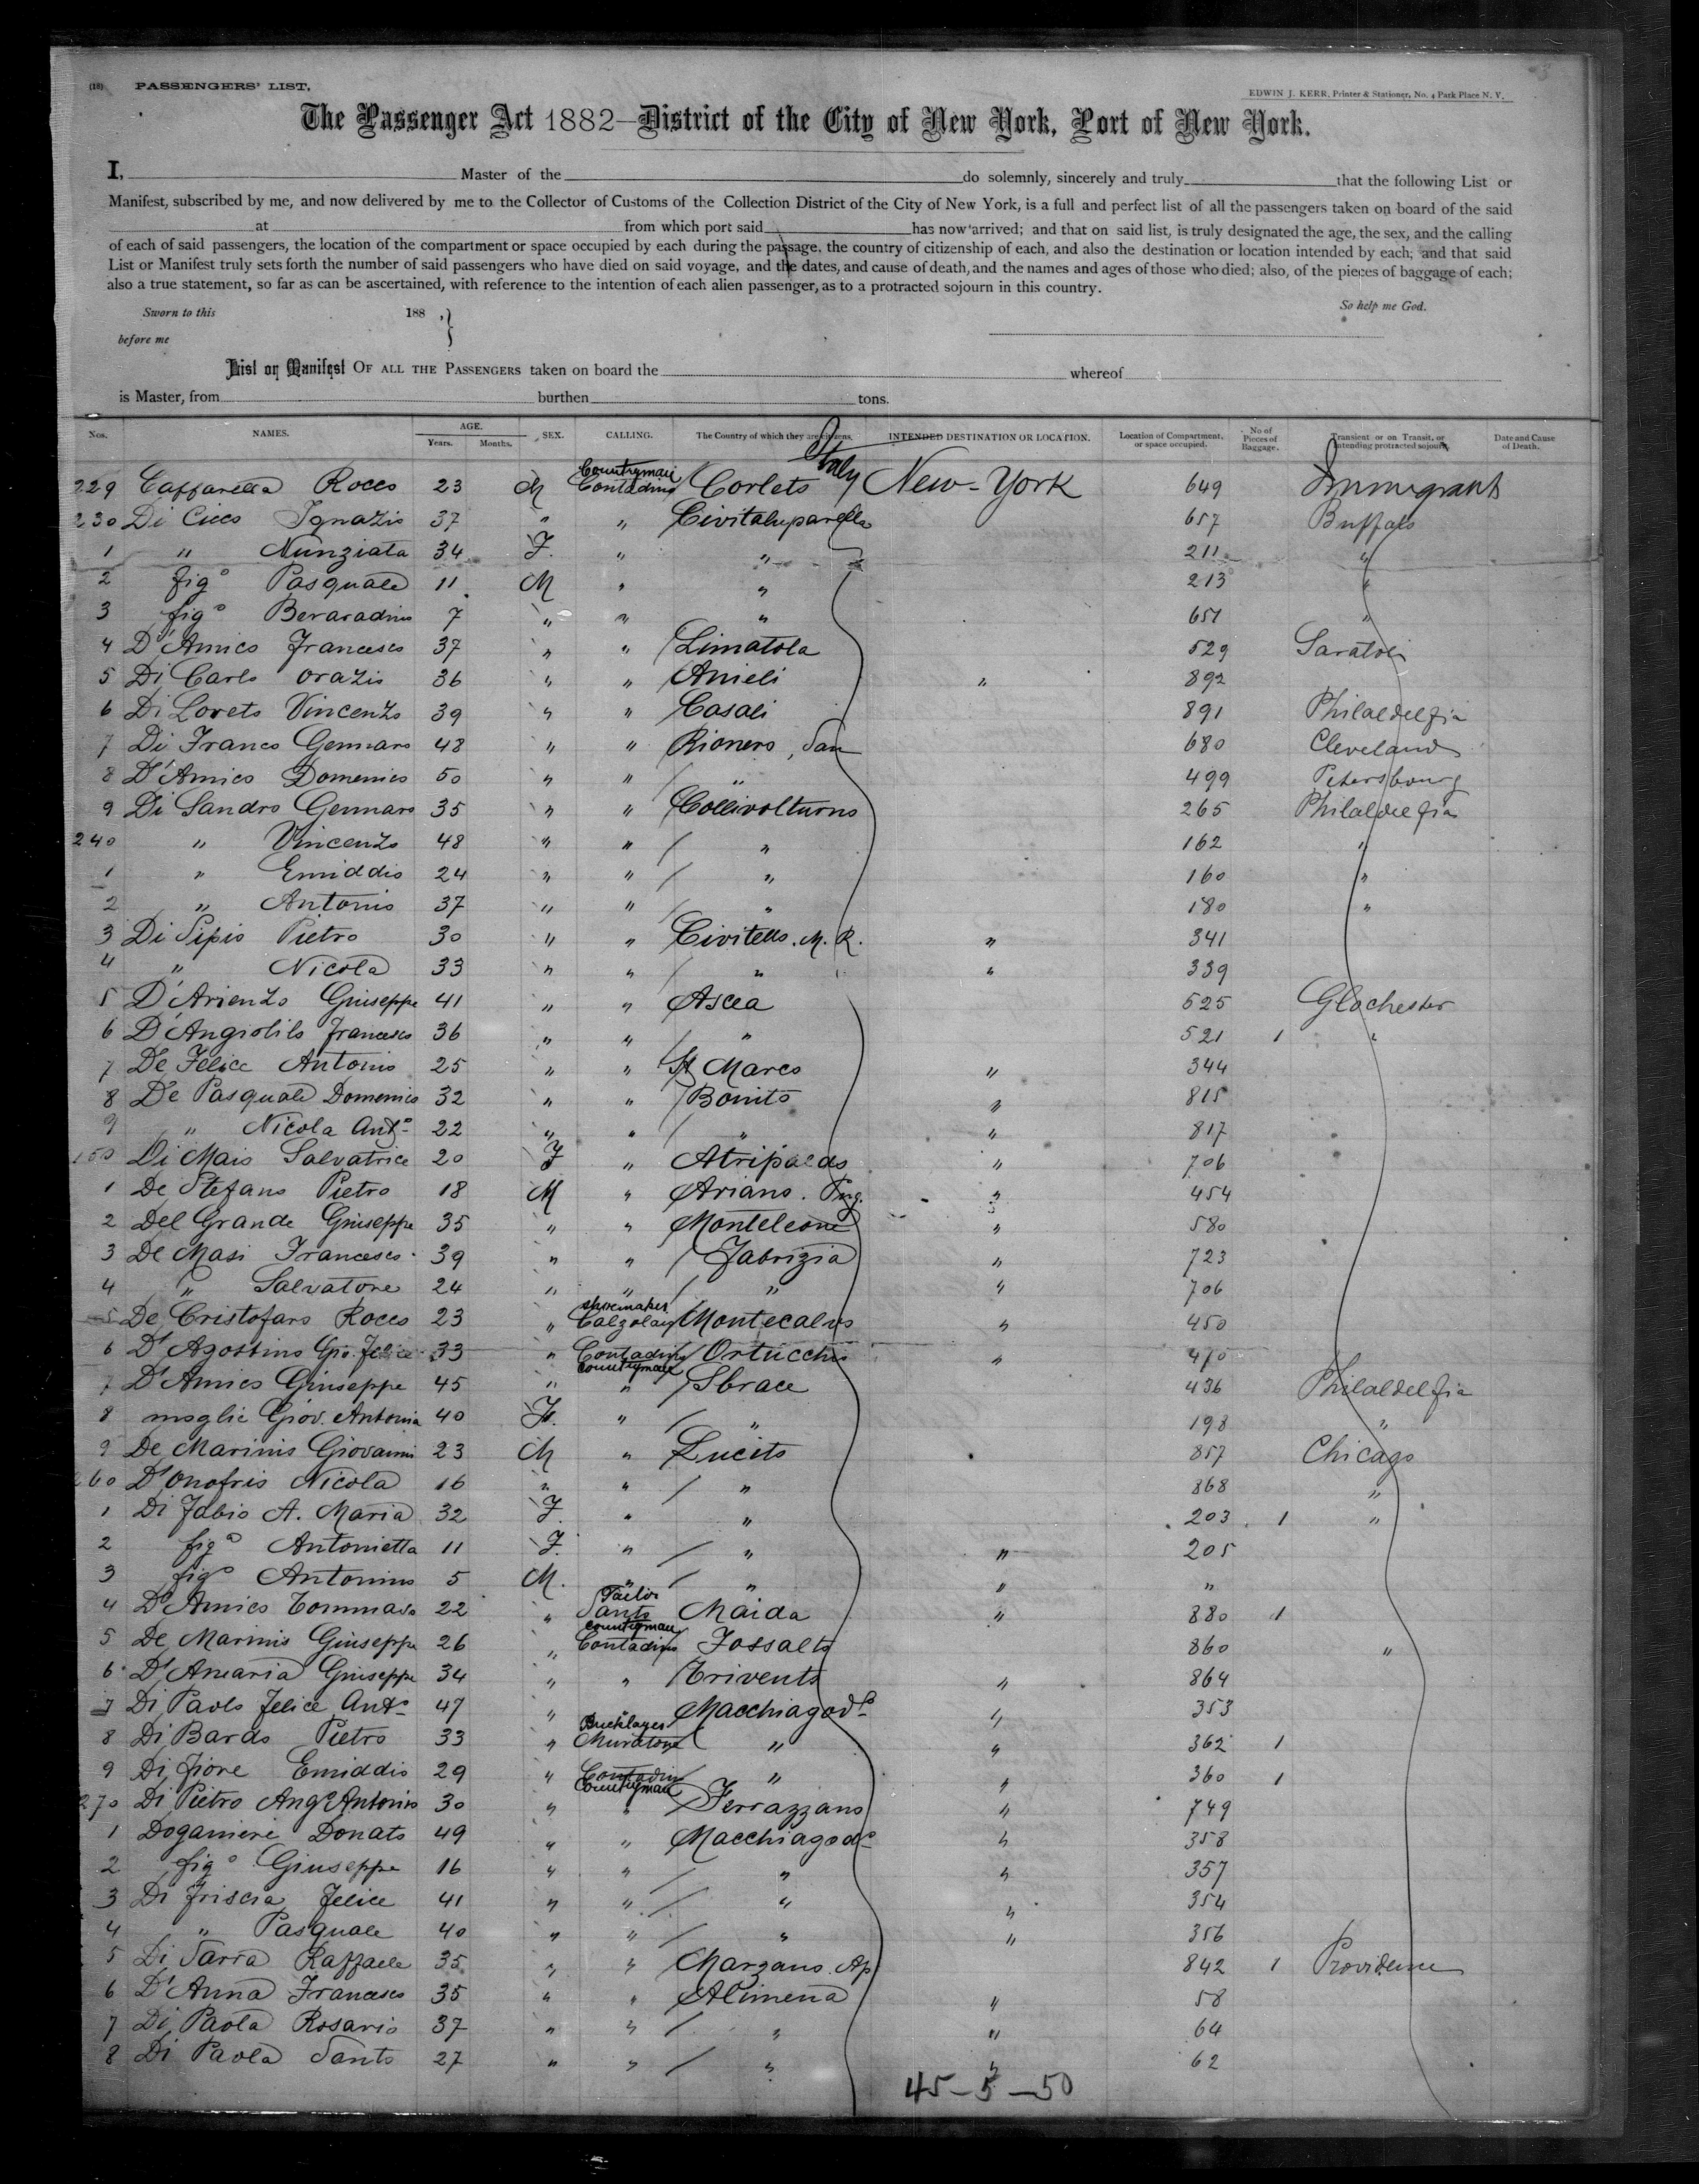 (18) PASSENGERS' LIST.
EDWIN J. KERR, Printer & Stationer, No. 4 Park Place N. Y.
The Passenger Act 1882—District of the City of New York, Port of New York.
I, Master of the do solemnly, sincerely and truly that the following List or
Manifest, subscribed by me, and now delivered by me to the Collector of Customs of the Collection District of the City of New York, is a full and perfect list of all the passengers taken on board of the said
at from which port said has now arrived; and that on said list, is truly designated the age, the sex, and the calling
of each of said passengers, the location of the compartment or space occupied by each during the passage, the country of citizenship of each, and also the destination or location intended by each; and that said
List or Manifest truly sets forth the number of said passengers who have died on said voyage, and the dates, and cause of death, and the names and ages of those who died; also, of the pieces of baggage of each;
also a true statement, so far as can be ascertained, with reference to the intention of each alien passenger, as to a protracted sojourn in this country.
Sworn to this 188 , } So help me God.
before me
List or Manifest OF ALL THE PASSENGERS taken on board the whereof
is Master, from burthen tons.
Nos. NAMES. AGE. Years. Months. SEX. CALLING. The Country of which they are citizens. INTENDED DESTINATION OR LOCATION. Location of Compartment, or space occupied. No of Pieces of Baggage. Transient or on Transit, or intending protracted sojourn. Date and Cause of Death.
Italy
Countryman
229 Caffarella Rocco 23 M Contadino Corleto New-York 649 Immigrant
230 Di Cicco Ignazio 37 " " Civitaluparella 657 Buffalo
1 " Nunziata 34 F. " " 211 "
2 figo Pasquale 11 M " " 213 "
3 figo Beraradino 7 " " " 651 "
4 D'Amico Francesco 37 " " Limatola 529
5 Di Carlo Orazio 36 " " Anieli " 892
6 Di Loreto Vincenzo 39 " " Casali 891 Philaldelfia
7 Di Franco Gennaro 48 " " Rionero, San 680 Cleveland
8 D'Amico Domenico 50 " " " 499 Petersbourg
9 Di Sandro Gennaro 35 " " Collivolturno 265 Philaldelfia
240 " Vincenzo 48 " " " 162 "
1 " Emiddio 24 " " " 160 "
2 " Antonio 37 " " " 180 "
3 Di Sipio Pietro 30 " " Civitella. M. R. " 341
4 " Nicola 33 " " " " 339
5 D'Arienzo Giuseppe 41 " " Ascea 525 Glochester
6 D'Angiolilo Francesco 36 " " " 521 1 "
7 De Felice Antonio 25 " " St Marco " 344
8 De Pasquale Domenico 32 " " Bonito " 815
9 " Nicola Anto 22 " " " " 817
Di Maio Salvatrice 20 F " Atripaldo " 706
1 De Stefano Pietro 18 M " Ariano. Pug. " 454
2 Del Grande Giuseppe 35 " " Monteleone " 580
3 De Masi Francesco 39 " " Fabrizia " 723
4 " Salvatore 24 " " " " 706
shoemaker
5 De Cristofaro Rocco 23 " Calzolay Montecalvo " 450
6 D'Agostino Gio. Felice 33 " Contadino Ortucchio " 470
countryman
7 D'Amico Giuseppe 45 " " Sbrace 436 Philaldelfia
8 moglie Giov. Antonia 40 F. " " 198 "
9 De Marinis Giovanni 23 M " Lucito 857 Chicago
260 D'Onofrio Nicola 16 " " " 868 "
1 Di Fabio A. Maria 32 F. " " 203 1 "
2 figa Antonietta 11 F. " " " 205
3 figo Antonino 5 M. " " " "
Tailor
4 D'Amico Tommaso 22 " Sarto Maida " 880 1
countryman
5 De Marinis Giuseppe 26 " Contadino Fossalto 860 "
6 D'Amaria Giuseppe 34 " " Trivento " 864
7 Di Paolo Felice Anto 47 " " Macchiagodo " 353
Bricklayer
8 Di Bardo Pietro 33 " Muratore " " 362 1
9 Di Fiore Emiddio 29 " Contadino " " 360 1
Countryman
270 Di Pietro Ango Antonio 30 " " Ferrazzano " 749
1 Doganieri Donato 49 " " Macchiagodo " 358
2 figo Giuseppe 16 " " " " 357
3 Di Friscia Felice 41 " " " " 354
4 " Pasquale 40 " " " " 356
5 Di Sarra Raffaele 35 " " Marzano. Ap 842 1 Providence
6 D'Anna Francesco 35 " " Alimena " 58
7 Di Paola Rosario 37 " " " " 64
8 Di Paola Santo 27 " " " " 62
45-5-50